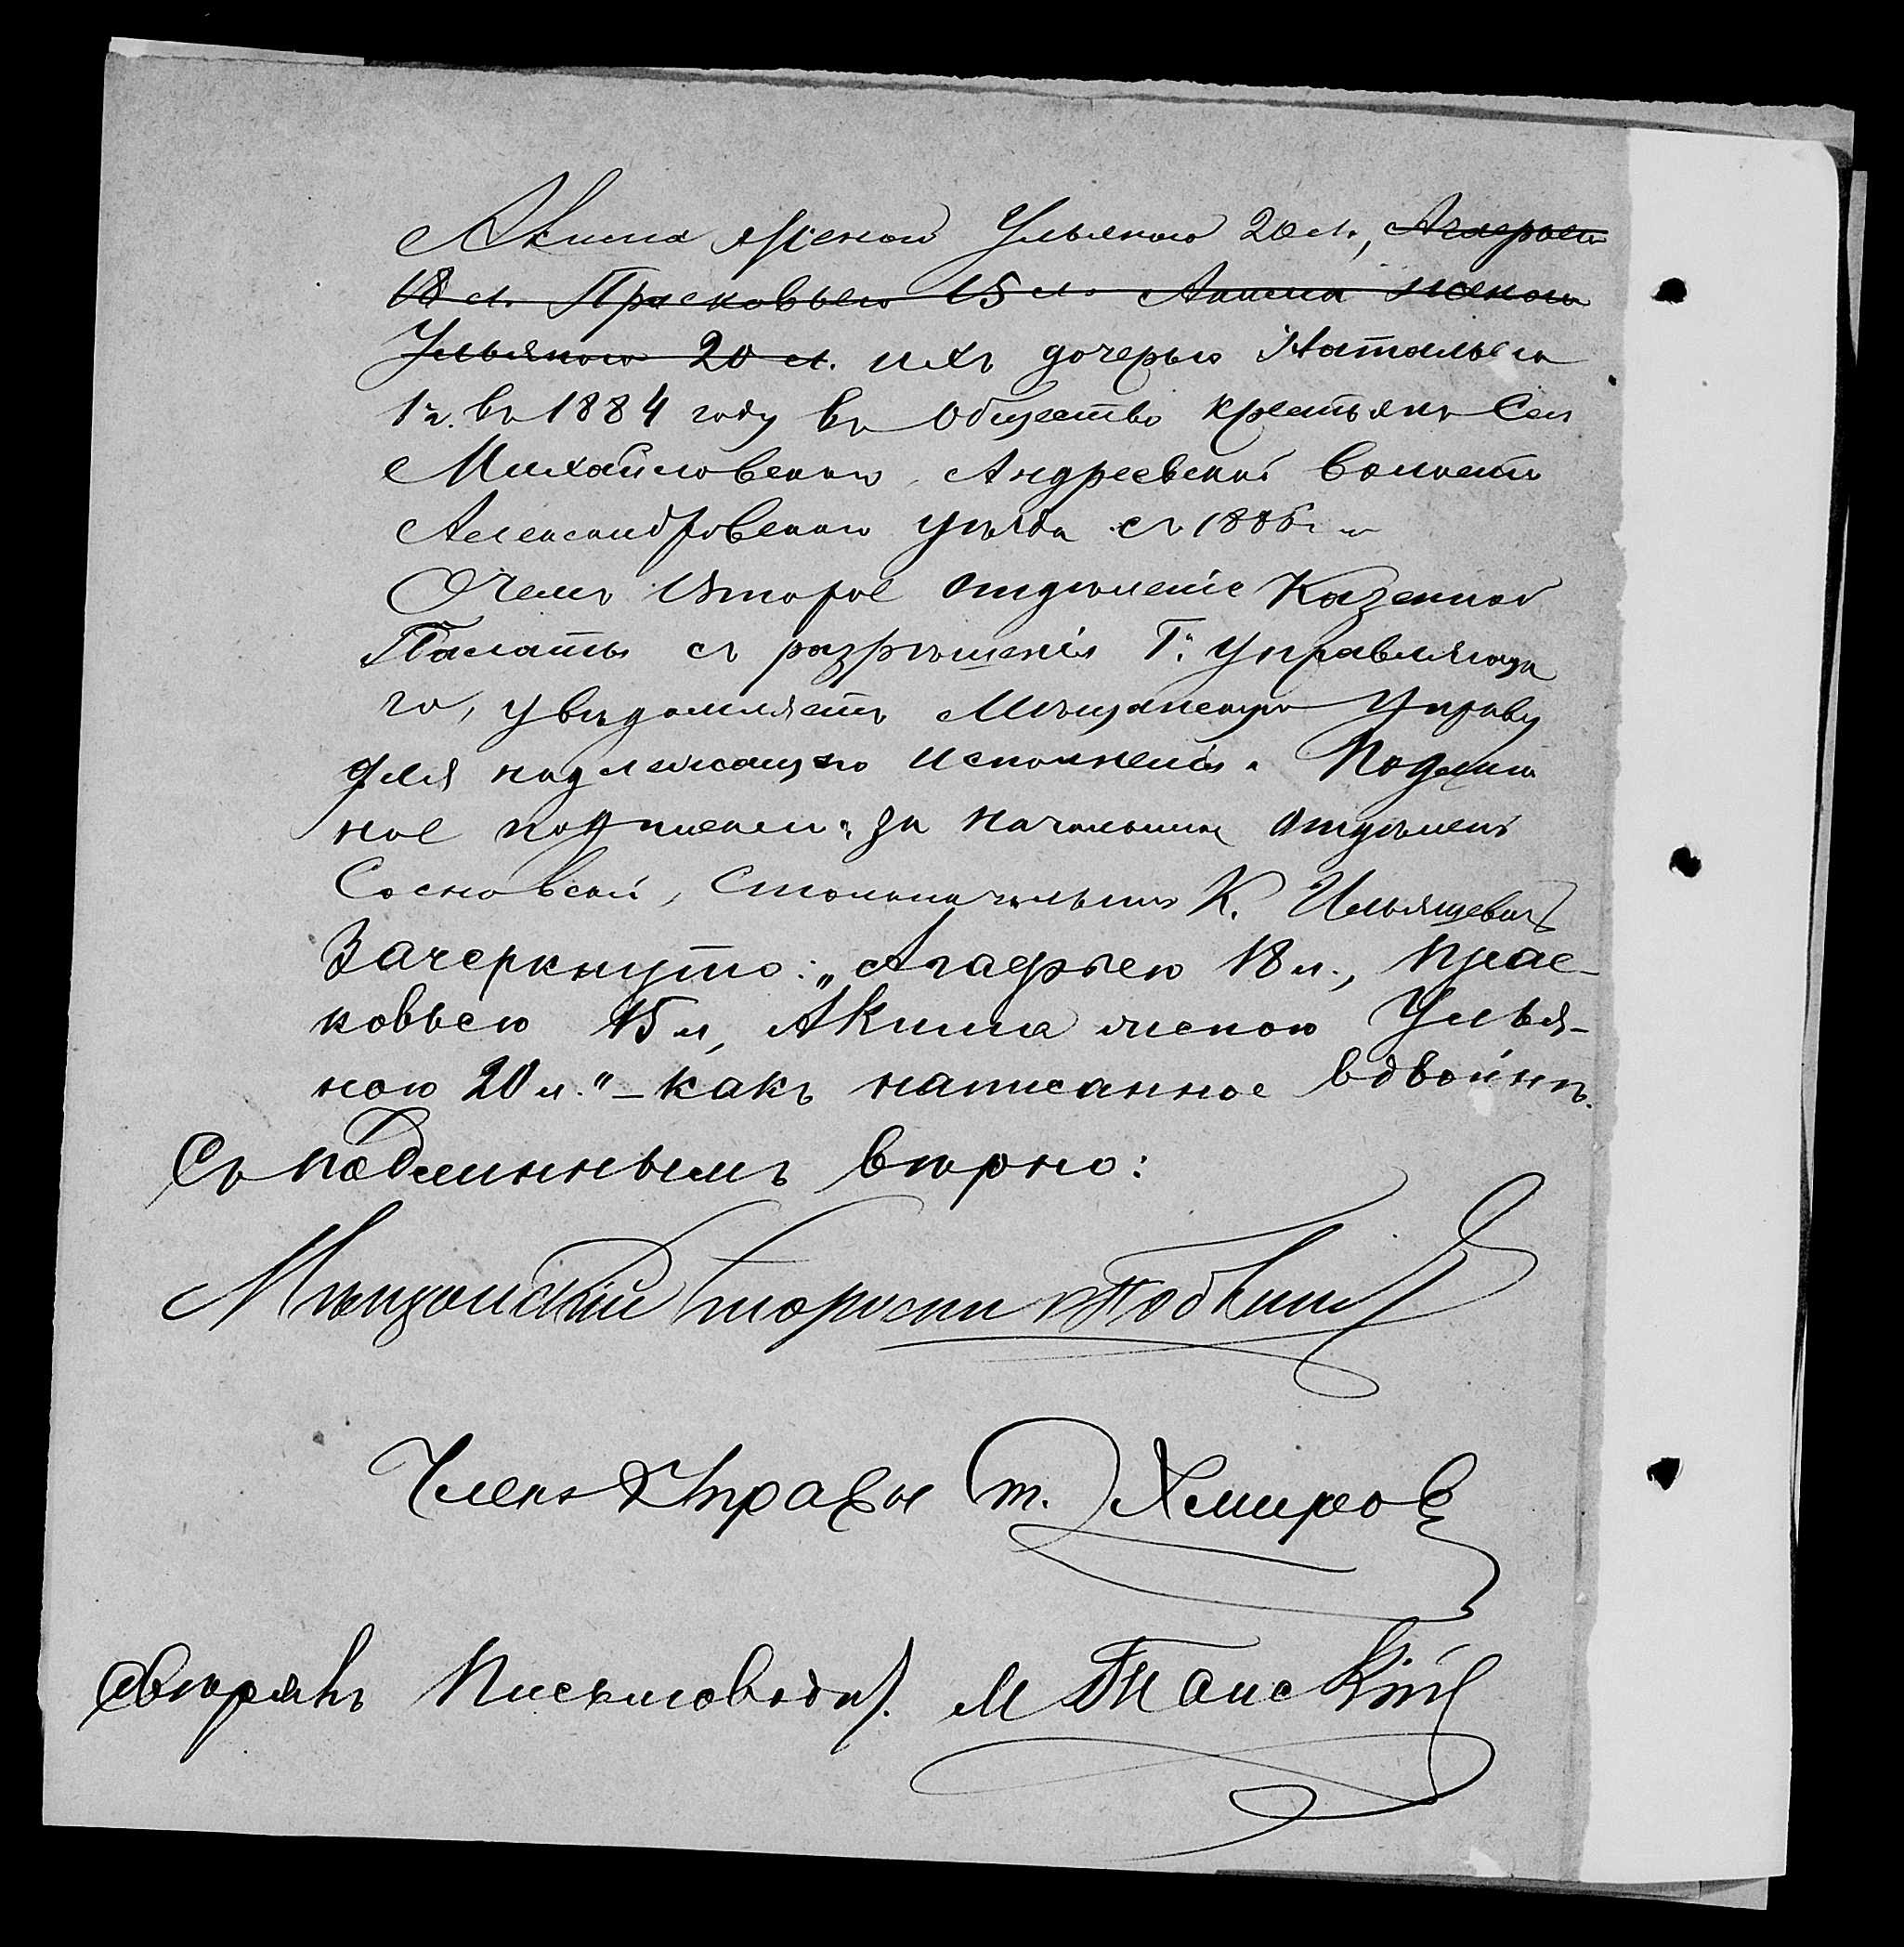 Акима женою Ульяною 20 л., Агафьею
18 л. Прасковьею 15 л. Акима женою
Ульяною 20 л. ихъ дочерью Натальею
1 г. въ 1884 году въ Общество крестьянъ Села
Михайловскаго, Андреевской волости
Александровскаго уѣзда съ 1886 г.
О чемъ Второе отдѣленіе Казенной
Палаты съ разрѣшенія Г. Управляюща
го, увѣдомляетъ Мѣщанскую Управу
для надлежащаго исполненія. Подлин
ное подписали: за Начальника Отдѣленія
Сосновскій, Столоначальникъ К. Ильяшевичъ
Зачеркнуто: „Агафьею 18 л., Прас-
ковьею 15 л., Акима женою Улья-
ною 20 л." – какъ написанное вдвойнѣ.
Съ подлиннымъ вѣрно:
Мѣщанскій Староста
Членъ Управы т. Хмировъ
Свѣрялъ Письмоводит. М